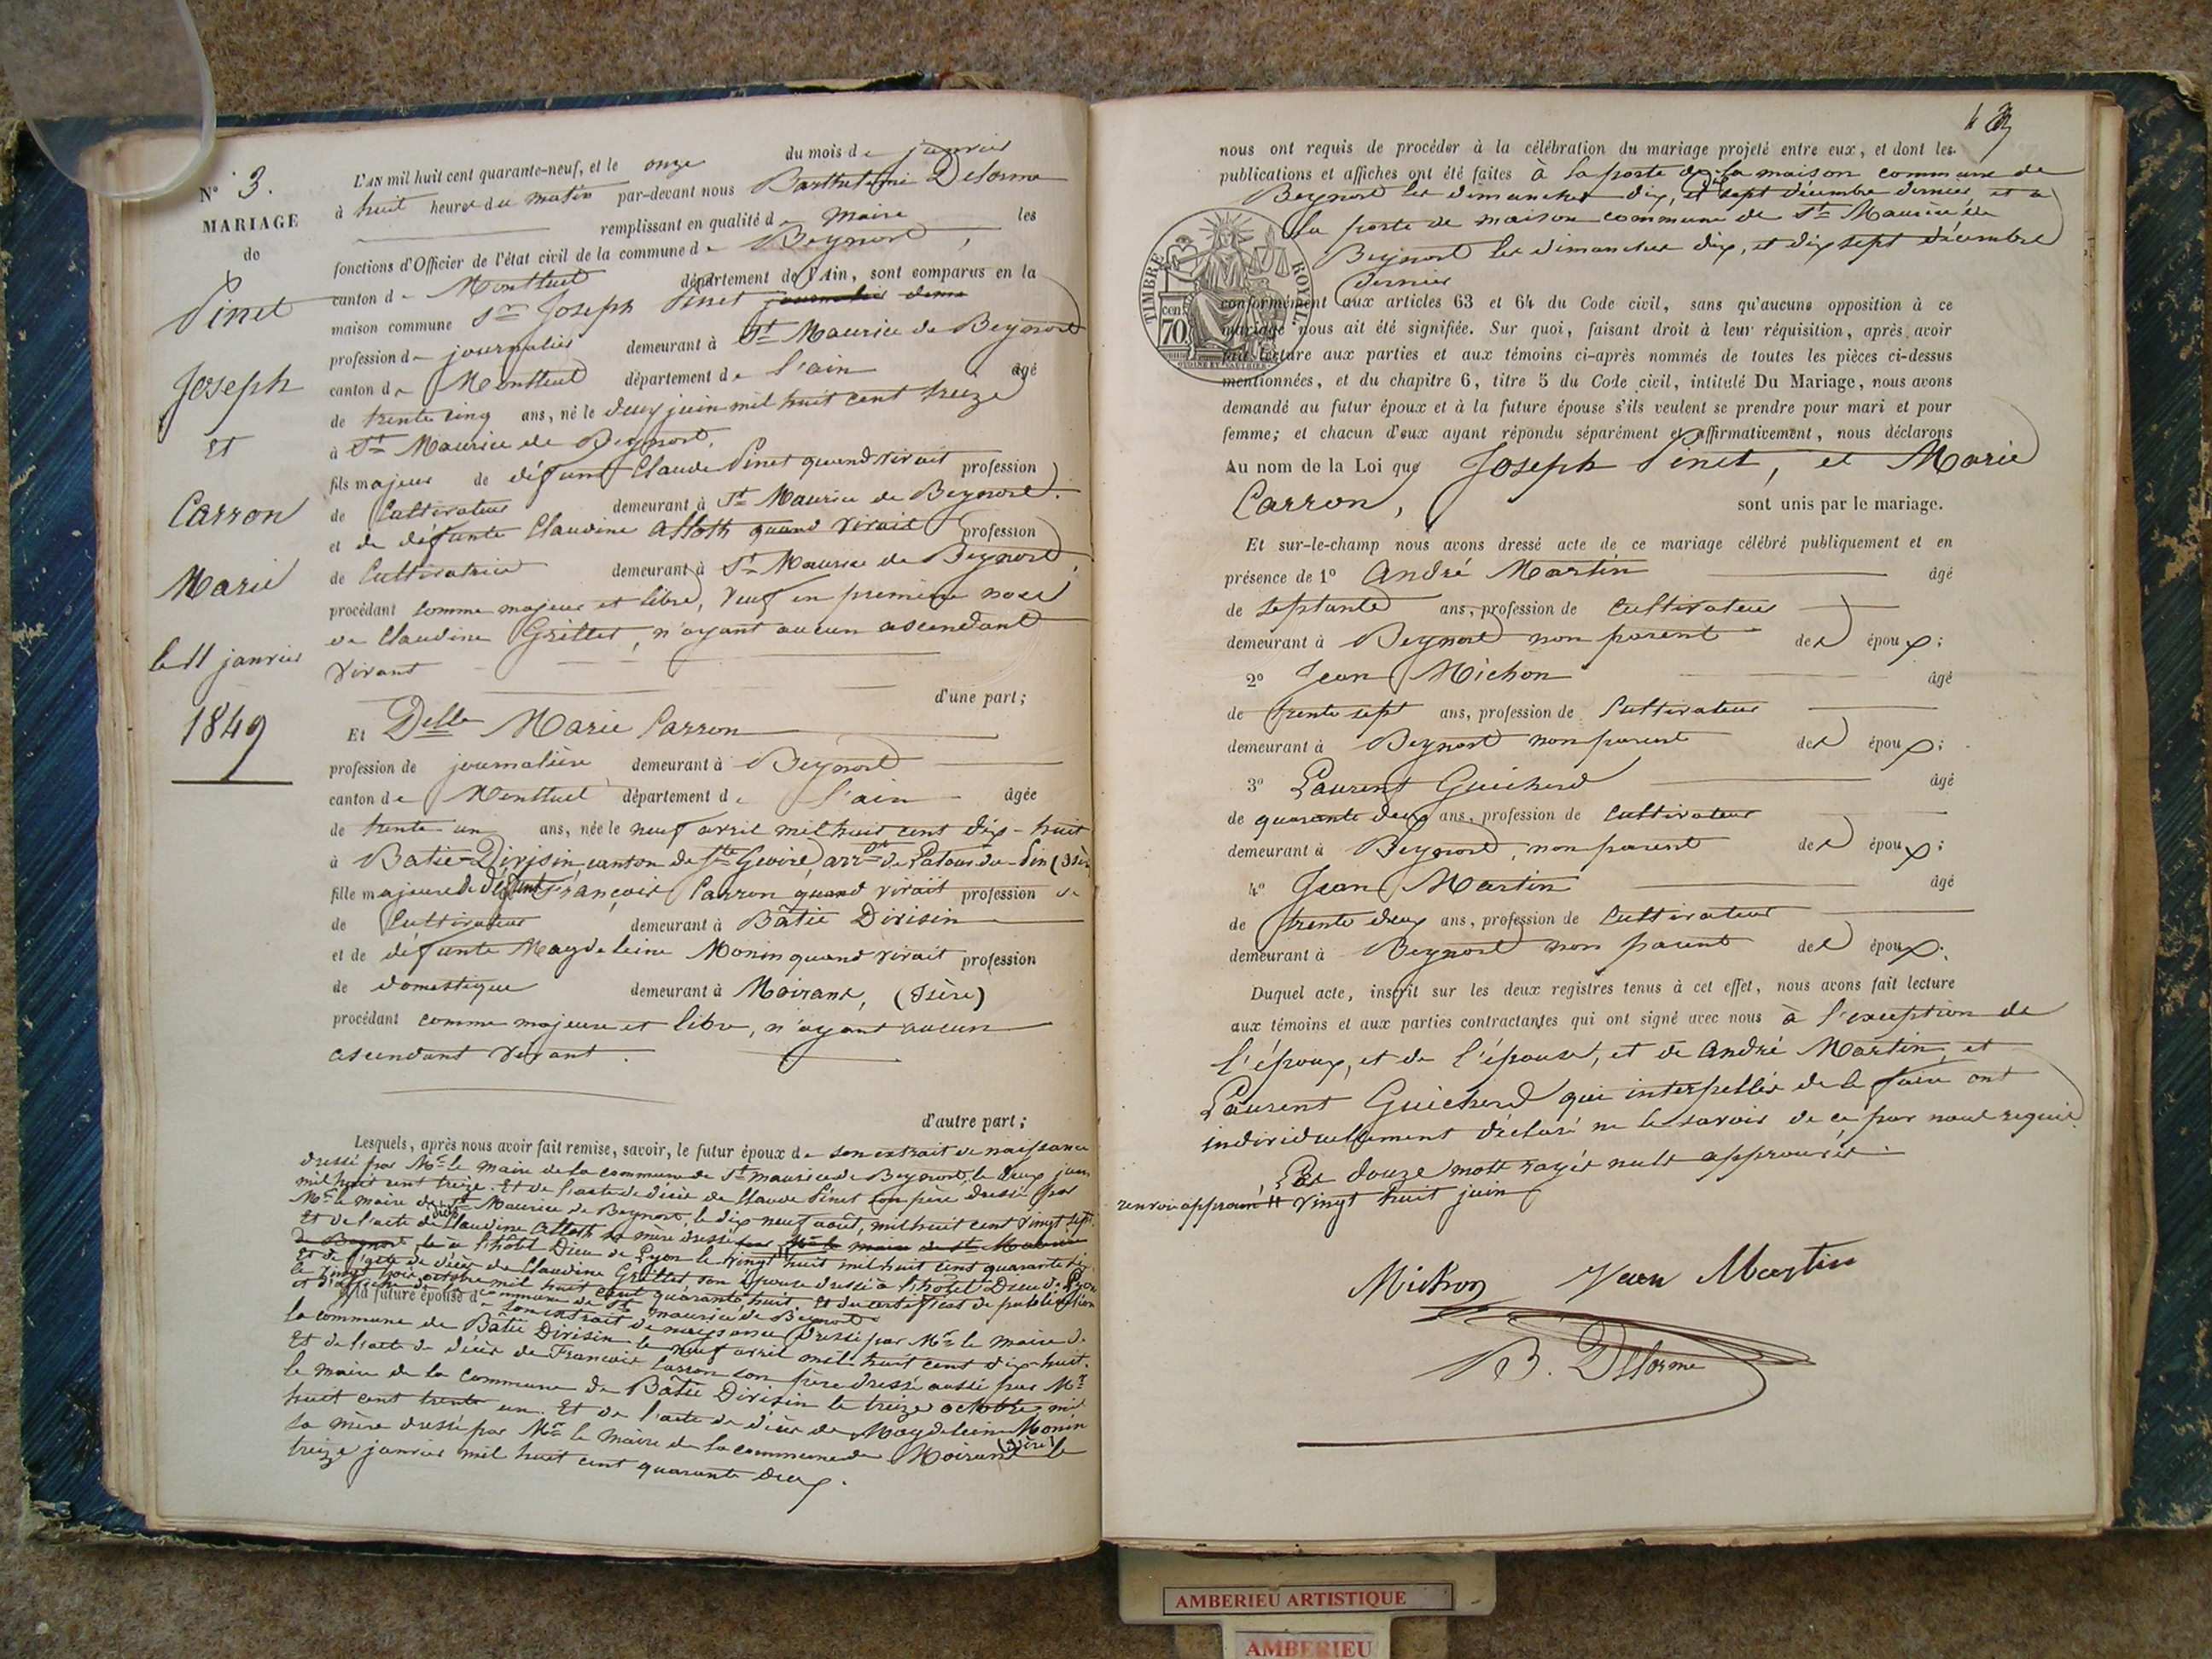 N° 3.
MARIAGE
de
Pinet
Joseph
Et
Carron
Marie
le 11 janvier
1849
L'AN mil huit cent quarante-neuf, et le onze du mois de janvier
à huit heures du matin par-devant nous Barthelemi Delorme
remplissant en qualité de Maire les
fonctions d'Officier de l'état civil de la commune de Beynost,
canton de Montluel département de l'Ain, sont comparus en la
maison commune Sr Joseph Pinet journalier deme
profession de journalier demeurant à St Maurice de Beynost
canton de Montluel département de l'ain âgé
de trente cinq ans, né le deux juin mil huit cent treize
à St Maurice de Beynost,
fils majeur de défunt Claude Pinet quand vivait profession
de Cultivateur demeurant à St Maurice de Beynost.
et de défunte Claudine Alloth quand vivait profession
de Cultivatrice demeurant à St Maurice de Beynost,
procédant comme majeur et libre, veuf en premiere noce
de Claudine Grillet, n'ayant aucun ascendant
vivant
d'une part;
Et Delle Marie Carron
profession de journalière demeurant à Beynost
canton de Montluel département de l'ain âgée
de trente un ans, née le neuf avril mil huit cent dix-huit
à Batie-Divisin, canton de St Geoire, arrt de Latour-du-Pin (Isère
fille majeure de défunt François Carron quand vivait profession de
de Cultivateur demeurant à Bâtie Divisin
et de défunte Magdeleine Monin quand vivait profession
de domestique demeurant à Moirans, (Isère)
procédant comme majeure et libre, n'ayant aucun
ascendant vivant.
d'autre part;
Lesquels, après nous avoir fait remise, savoir, le futur époux de son extrait de naissance
dressé par Mr le maire de la commune de St maurice de Beynost, le deux juin
mil huit cent treize. Et de l'acte de décès de Claude Pinet son père dressé par
Mr le maire de St Maurice de Beynost, le dix neuf août, mil huit cent vingt sept.
Et de l'acte de décès Claudine Alloth sa mère dressé par Mr le maire de St Maurice
de Beynost, le à l'hôtel Dieu de Lyon le vingt huit mil huit cent quarante six
Et de l'acte de décès de Claudine Grillet son épouse dressé à l'hôtel Dieu de Lyon
le vingt trois octobre mil huit cent quarante huit. Et du certificat de publication
et d'affiche de la commune de St maurice de Beynost.
et la future épouse de son extrait de naissance dressé par Mr le maire de
la commune de Bâtie Divisin le neuf avril mil huit cent dix huit.
Et de l'acte de décès de François Carron son père dressé aussi par Mr
le maire de la commune de Bâtie Divisin le treize octobre mil
huit cent trente un. Et de l'acte de décès de Magdeleine Monin
sa mère dressé par Mr le maire de la commune de Moirans (Isère) le
treize janvier mil huit cent quarante deux.
nous ont requis de procéder à la célébration du mariage projeté entre eux, et dont les
publications et affiches ont été faites à la porte de la maison commune de
Beynost les dimanches dix, et dix sept décembre dernier et a
la porte de maison commune de St Maurice de
Beynost les dimanches dix, et dix sept décembre
dernier
TIMBRE ROYAL
70 cen
conformément aux articles 63 et 64 du Code civil, sans qu'aucune opposition à ce
mariage nous ait été signifiée. Sur quoi, faisant droit à leur réquisition, après avoir
fait lecture aux parties et aux témoins ci-après nommés de toutes les pièces ci-dessus
mentionnées, et du chapitre 6, titre 5 du Code civil, intitulé Du Mariage, nous avons
demandé au futur époux et à la future épouse s'ils veulent se prendre pour mari et pour
femme; et chacun d'eux ayant répondu séparément et affirmativement, nous déclarons
Au nom de la Loi que Joseph Pinet, et Marie
Carron, sont unis par le mariage.
Et sur-le-champ nous avons dressé acte de ce mariage célébré publiquement et en
présence de 1° André Martin âgé
de septante ans, profession de Cultivateur
demeurant à Beynost non parent des époux;
2° Jean Michon âgé
de trente sept ans, profession de Cultivateur
demeurant à Beynost non parent des époux;
3° Laurent Guicherd âgé
de quarante deux ans, profession de Cultivateur
demeurant à Beynost, non parent des époux;
4° Jean Martin âgé
de trente deux ans, profession de Cultivateur
demeurant à Beynost non parent des époux.
Duquel acte, inscrit sur les deux registres tenus à cet effet, nous avons fait lecture
aux témoins et aux parties contractantes qui ont signé avec nous à l'exception de
l'époux, et de l'épouse, et de André Martin, et
Laurent Guicherd qui interpellés de le faire ont
individuellement déclaré ne le savoir de ce par nous requis.
Les douze mots rayés nuls approuvés.
renvoi approuvé # vingt huit juin
Michon Jean Martin
B. Delorme
AMBERIEU ARTISTIQUE
AMBERIEU